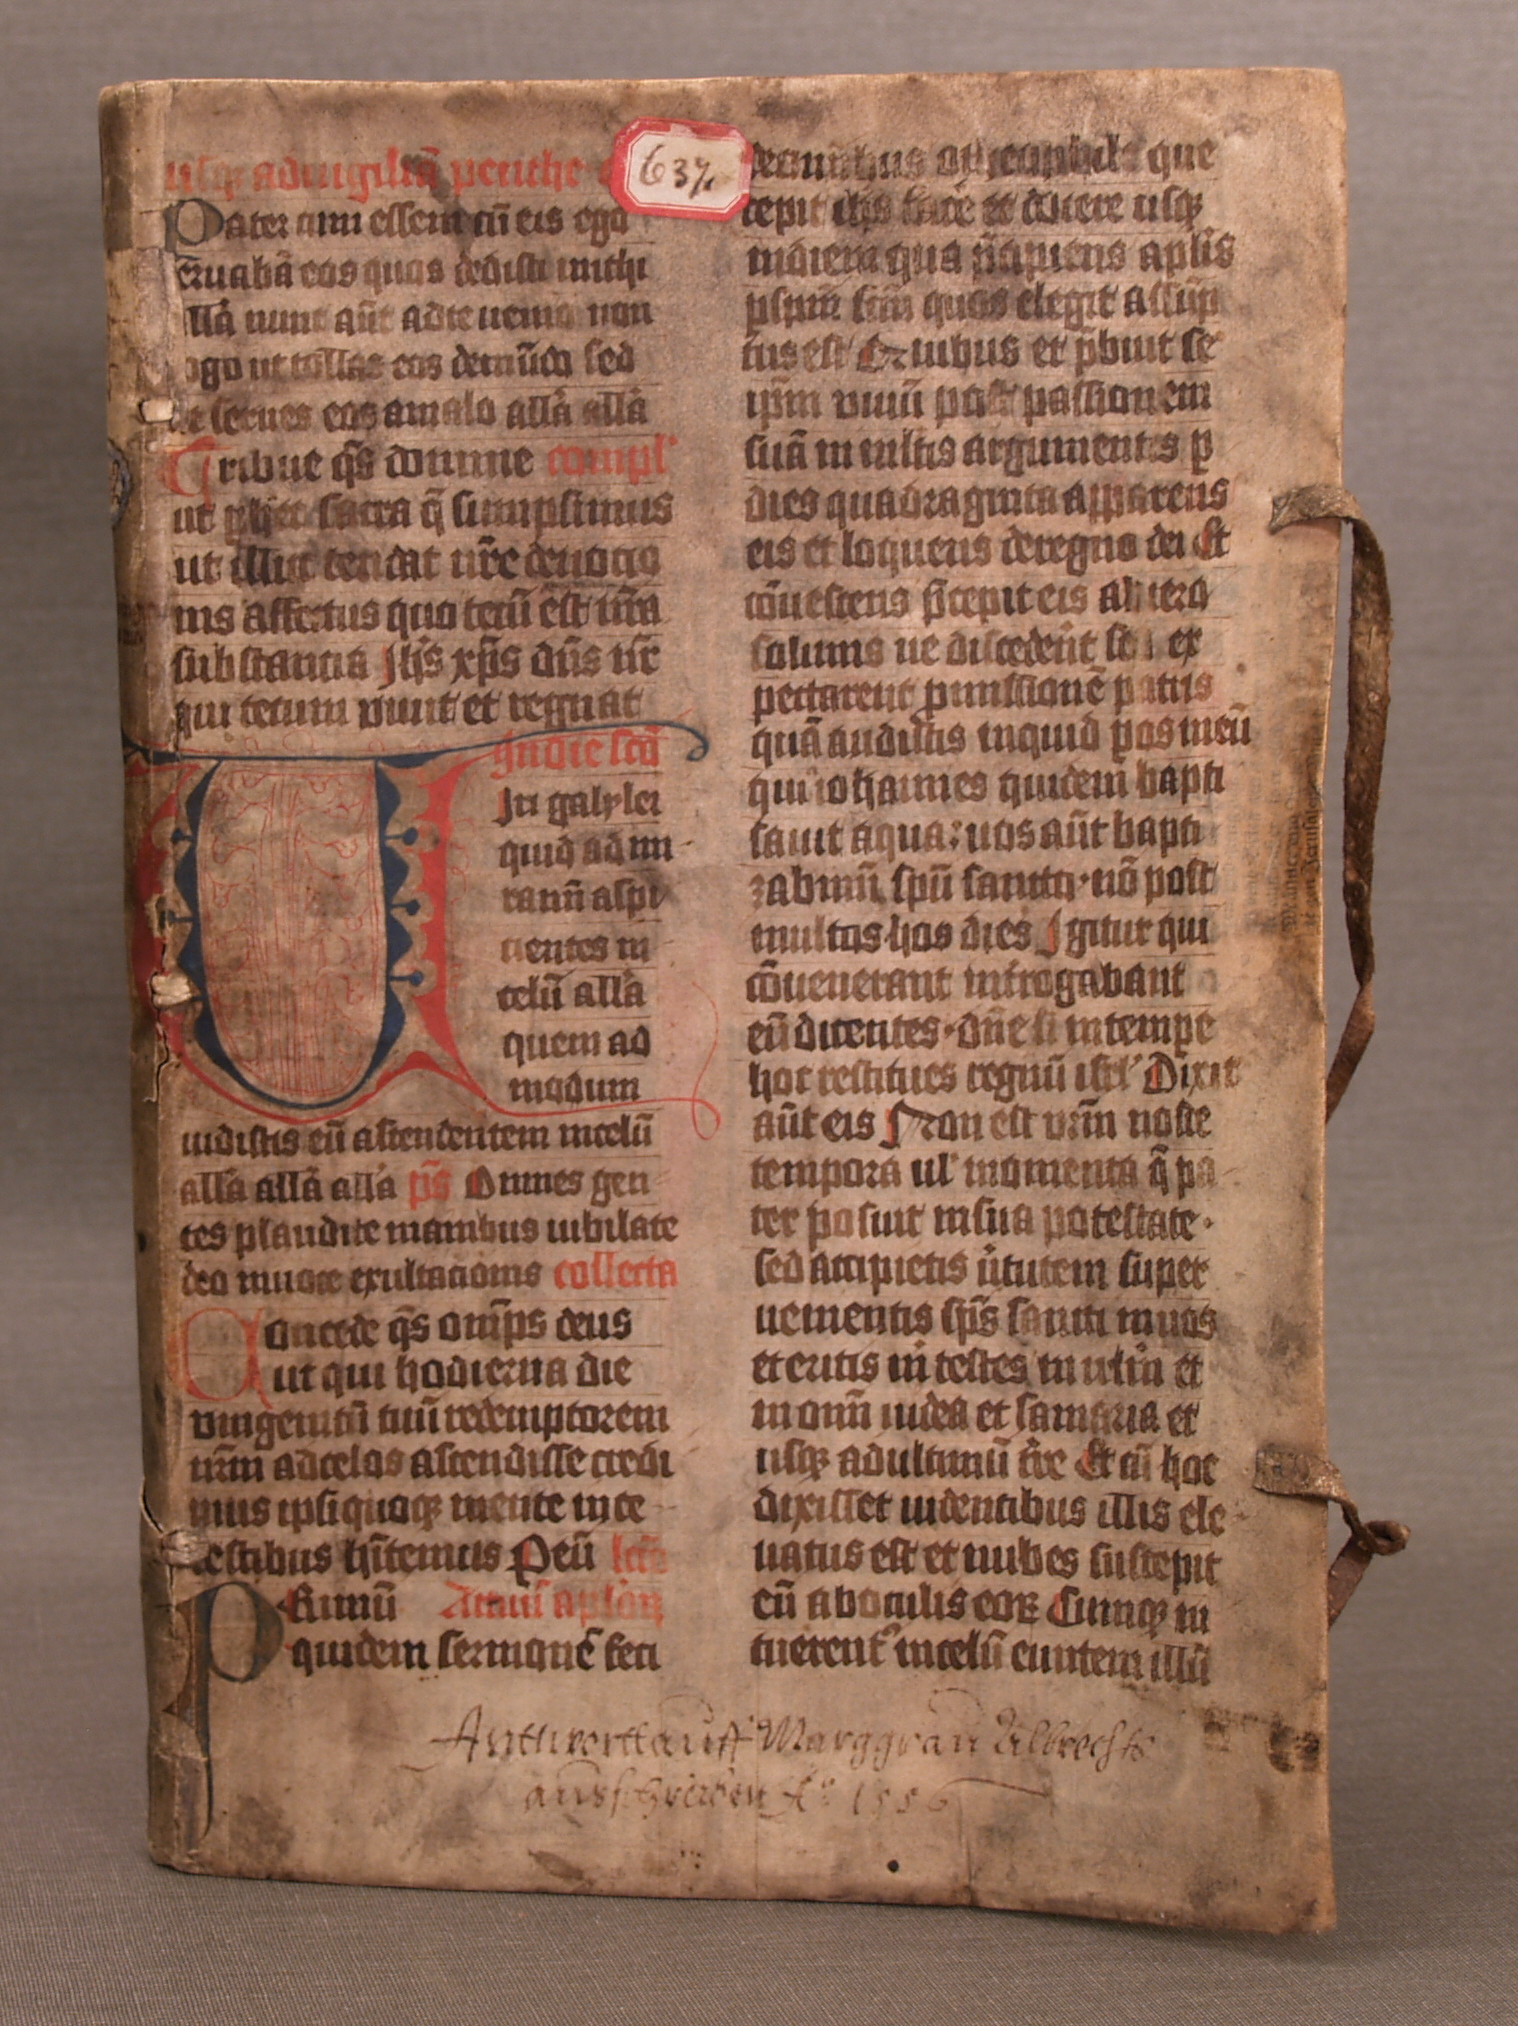 usq; ad uigiliā penthe
Pater cum essem cū eis ego
eruabā eos quos dedisti michi
allā nunc aūt ad te uenio non
ogo ut tollas eos de mūdo sed
ut serues eos a malo allā allā
Tribue qs domine compl'
ut p hec sacra q̄ sumpsimus
ut illuc tendat nr̄e deuocio
nis affectus quo tecū est nr̄a
substancia Ihs xp̄s dn̄s nr̄
qui tecum viuit et regnat
In die scō
Uiri galylei
quid admi
ramī aspi
cientes in
celū allā
quem ad
modum
uidistis eū ascendentem in celū
allā allā allā ps̄ Omnes gen
tes plaudite manibus iubilate
deo in uoce exultacionis collecta
Concede qs om̄ps deus
ut qui hodierna die
vnigenitū tuū redemptorem
nr̄m ad celos ascendisse credi
mus ipsi quoq; mente in ce
lestibus hītemus Peū lcō
Primū Actuū aplōꝝ
quidem sermonē feci
de omnibus o theophile que
cepit ihs facere et docere usq;
in diem qua p̄cipiens aplis
p spm̄ scm̄ quos elegit assūp
tus est Quibus et p̄buit se
ip̄m viuū post passionem
suā in multis argumentis p
dies quadraginta apparens
eis et loquens de regno dei Et
cōuescens p̄cepit eis ab iero
solumis ne discederēt sed ex
pectarent p̄missionē patris
quā audistis inquid p os meū
quia iohannes quidem bapti
sauit aqua: uos aūt bapti
zabimī spū sancto· nō post
multos hos dies Igitur qui
cōuenerant inṫrogabant
eū dicentes· dn̄e si in tempe
hoc restitues regnū isrl' Dixit
aūt eis Non est vr̄m nosse
tempora ul' momenta q̄ pa
ter posuit in sua potestate·
sed accipietis ūtutem super
uenientis sp̄s sancti in uos
et eritis m̄ testes in ihrlm et
in omī iudea et samaria et
usq; ad ultimū ṫre Et cū hoc
dixisset uidentibus illis ele
uatus est et nubes suscepit
eū ab oculis eoꝝ Cumq; in
tuerent' in celū euntem illū
637.
Anttwortt auff Marggraū Albrechts
ausschreiben Aº 1556